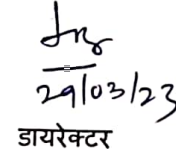 29/03/23
डायरेक्टर